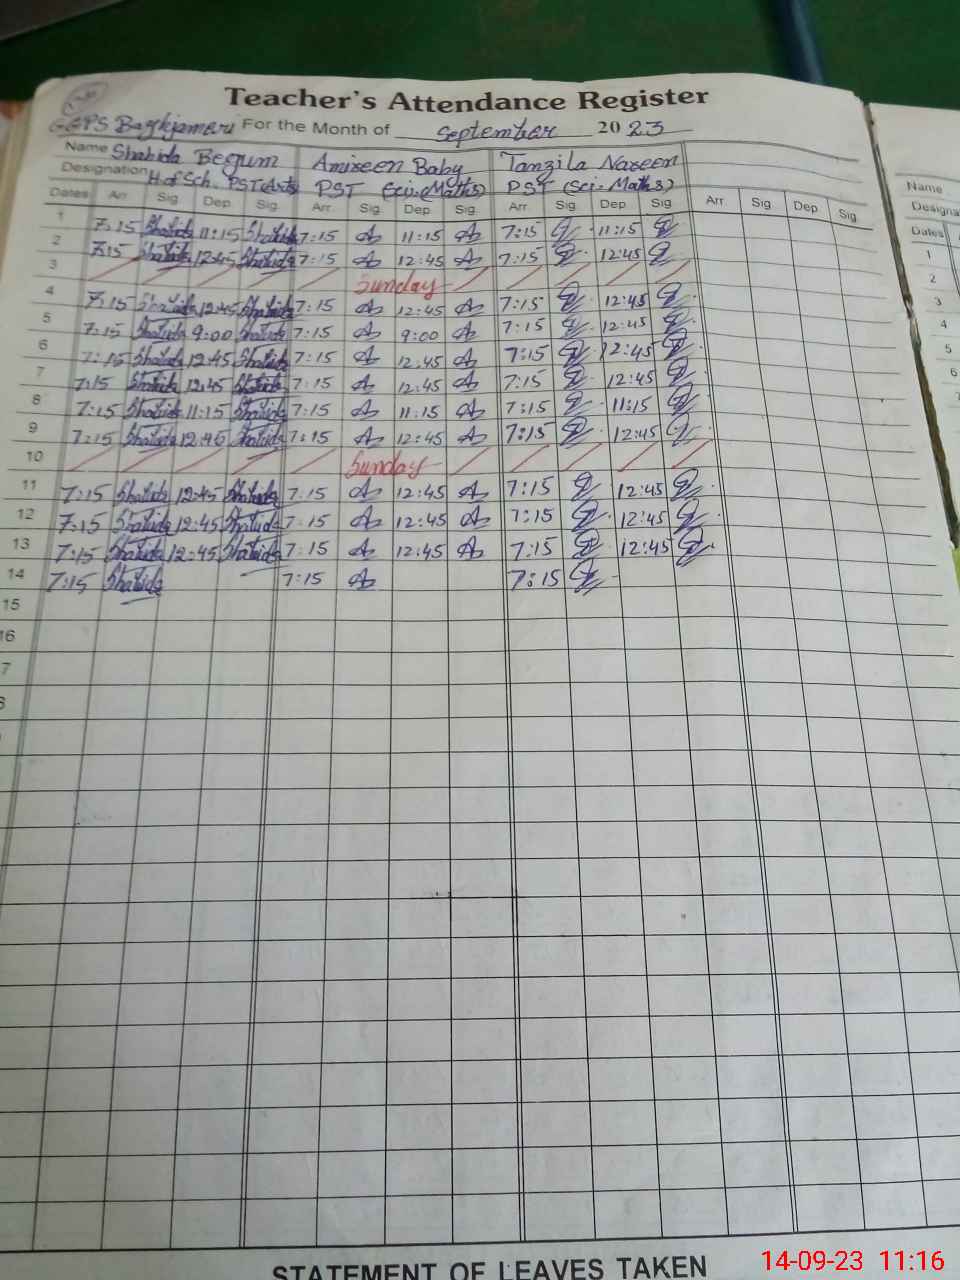 Teacher's Attendance Register
GGPS Baghjameri For the Month of September 2023
Name Shahida Begum Amireen Baby Tanzila Nazeen
Designation H.of Sch. PST (Arts) PST (Sci-Maths) PST (Sci-Maths)
Dates Arr Sig Dep Sig Arr. Sig Dep Sig. Arr. Sig. Dep Sig Arr Sig Dep Sig
1 7:15 Shahida 11:15 Shahida 7:15 11:15 7:15 11:15
2 7:15 Shahida 12:45 Shahida 7:15 12:45 7:15 12:45
3 Sunday
4 7:15 Shahida 12:45 Shahida 7:15 12:45 7:15 12:45
5 7:15 Shahida 9:00 Shahida 7:15 9:00 7:15 12:45
6 7:15 Shahida 12:45 Shahida 7:15 12:45 7:15 12:45
7 7:15 Shahida 12:45 Shahida 7:15 12:45 7:15 12:45
8 7:15 Shahida 11:15 Shahida 7:15 11:15 7:15 11:15
9 7:15 Shahida 12:45 Shahida 7:15 12:45 7:15 12:45
10 Sunday
11 7:15 Shahida 12:45 Shahida 7:15 12:45 7:15 12:45
12 7:15 Shahida 12:45 Shahida 7:15 12:45 7:15 12:45
13 7:15 Shahida 12:45 Shahida 7:15 12:45 7:15 12:45
14 7:15 Shahida 7:15 7:15
15
16
7
STATEMENT OF LEAVES TAKEN
Name
Designa
Dates
1
2
3
4
5
6
14-09-23 11:16